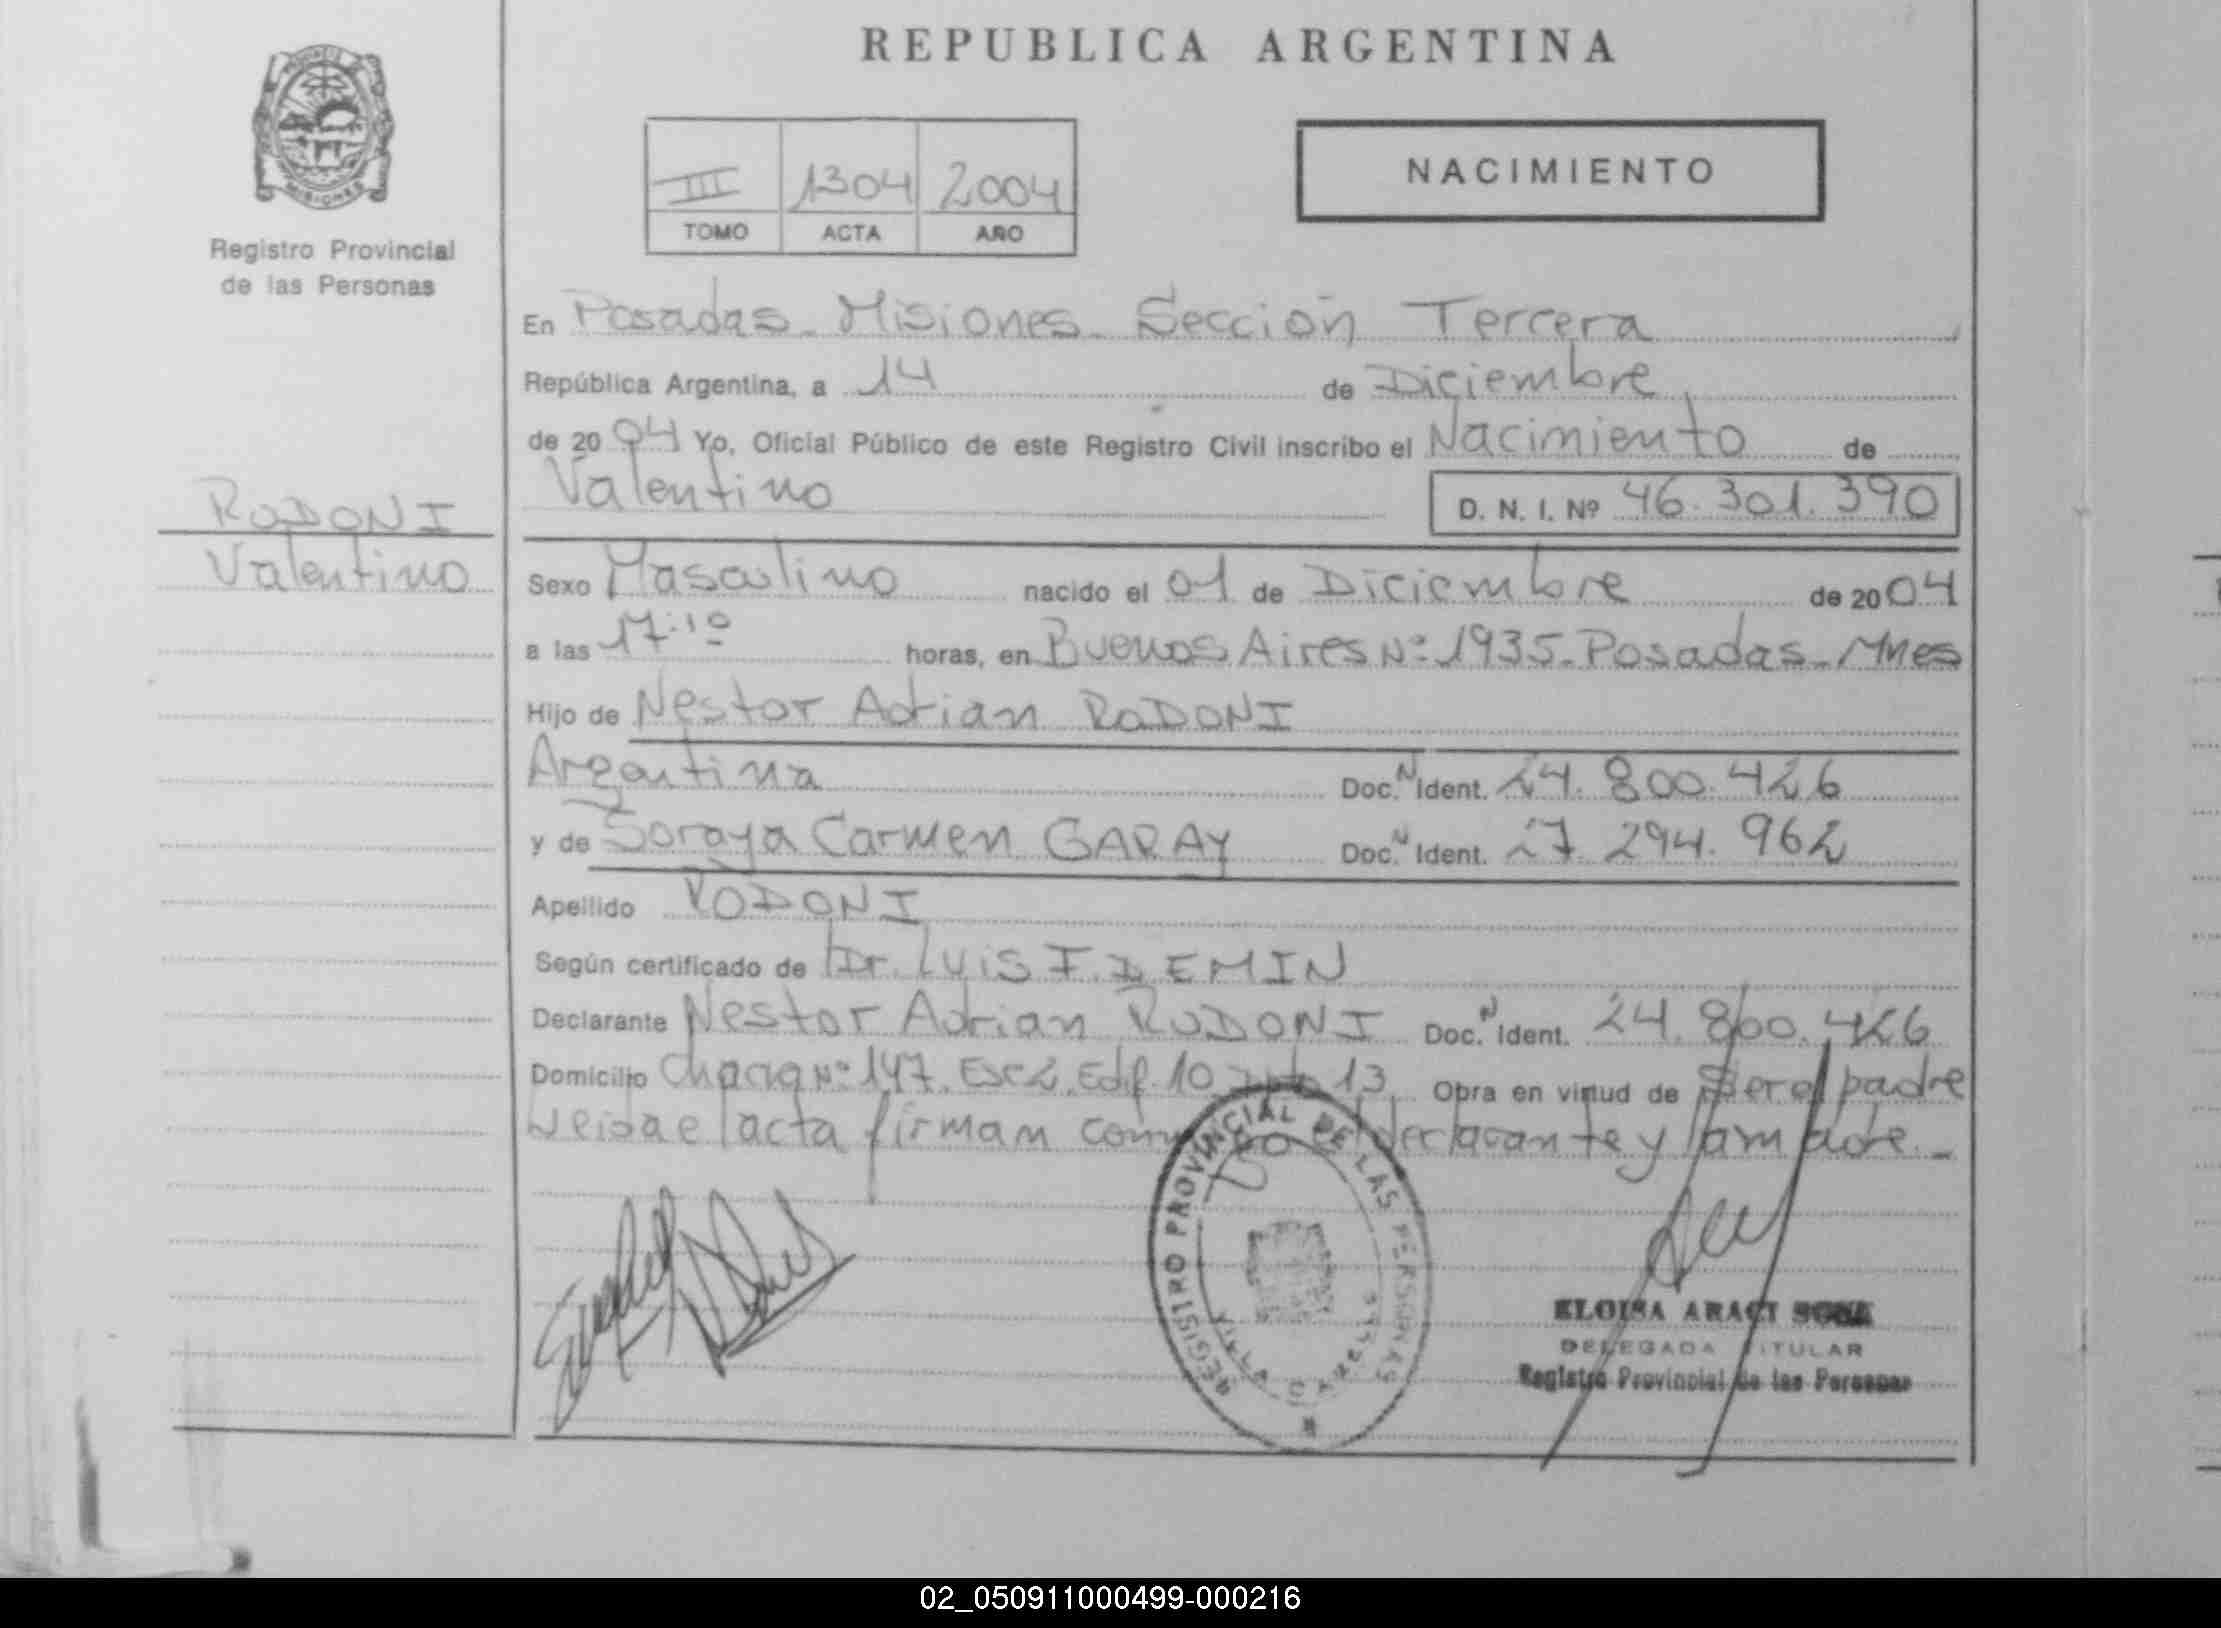 REPUBLICA ARGENTINA
MISIONES
Registro Provincial
de las Personas
III 1304 2004
TOMO ACTA AÑO
NACIMIENTO
En Posadas - Misiones - Sección Tercera
República Argentina, a 14 de Diciembre
de 2004 Yo, Oficial Público de este Registro Civil inscribo el Nacimiento de
Valentino D. N. I. Nº 46.301.390
RODONI
Valentino
Sexo Masculino nacido el 01 de Diciembre de 2004
a las 17:10 horas, en Buenos Aires Nº 1935 - Posadas - Mnes
Hijo de Nestor Adrian RODONI
Argentina Doc. N Ident. 24.800.426
y de Soraya Carmen GARAY Doc. N Ident. 27.294.962
Apellido RODONI
Según certificado de Dr. Luis F. DEMIN
Declarante Nestor Adrian RODONI Doc. N Ident. 24.800.426
Domicilio Chacra Nº 147. Esc 2. Edif. 10 13 Obra en virtud de Ser el padre
Leida el acta firman conmigo el declarante y la madre. -
REGISTRO PROVINCIAL DE LAS PERSONAS
ELOISA ARACI SOSA
DELEGADA TITULAR
Registro Provincial de las Personas
02_050911000499-000216